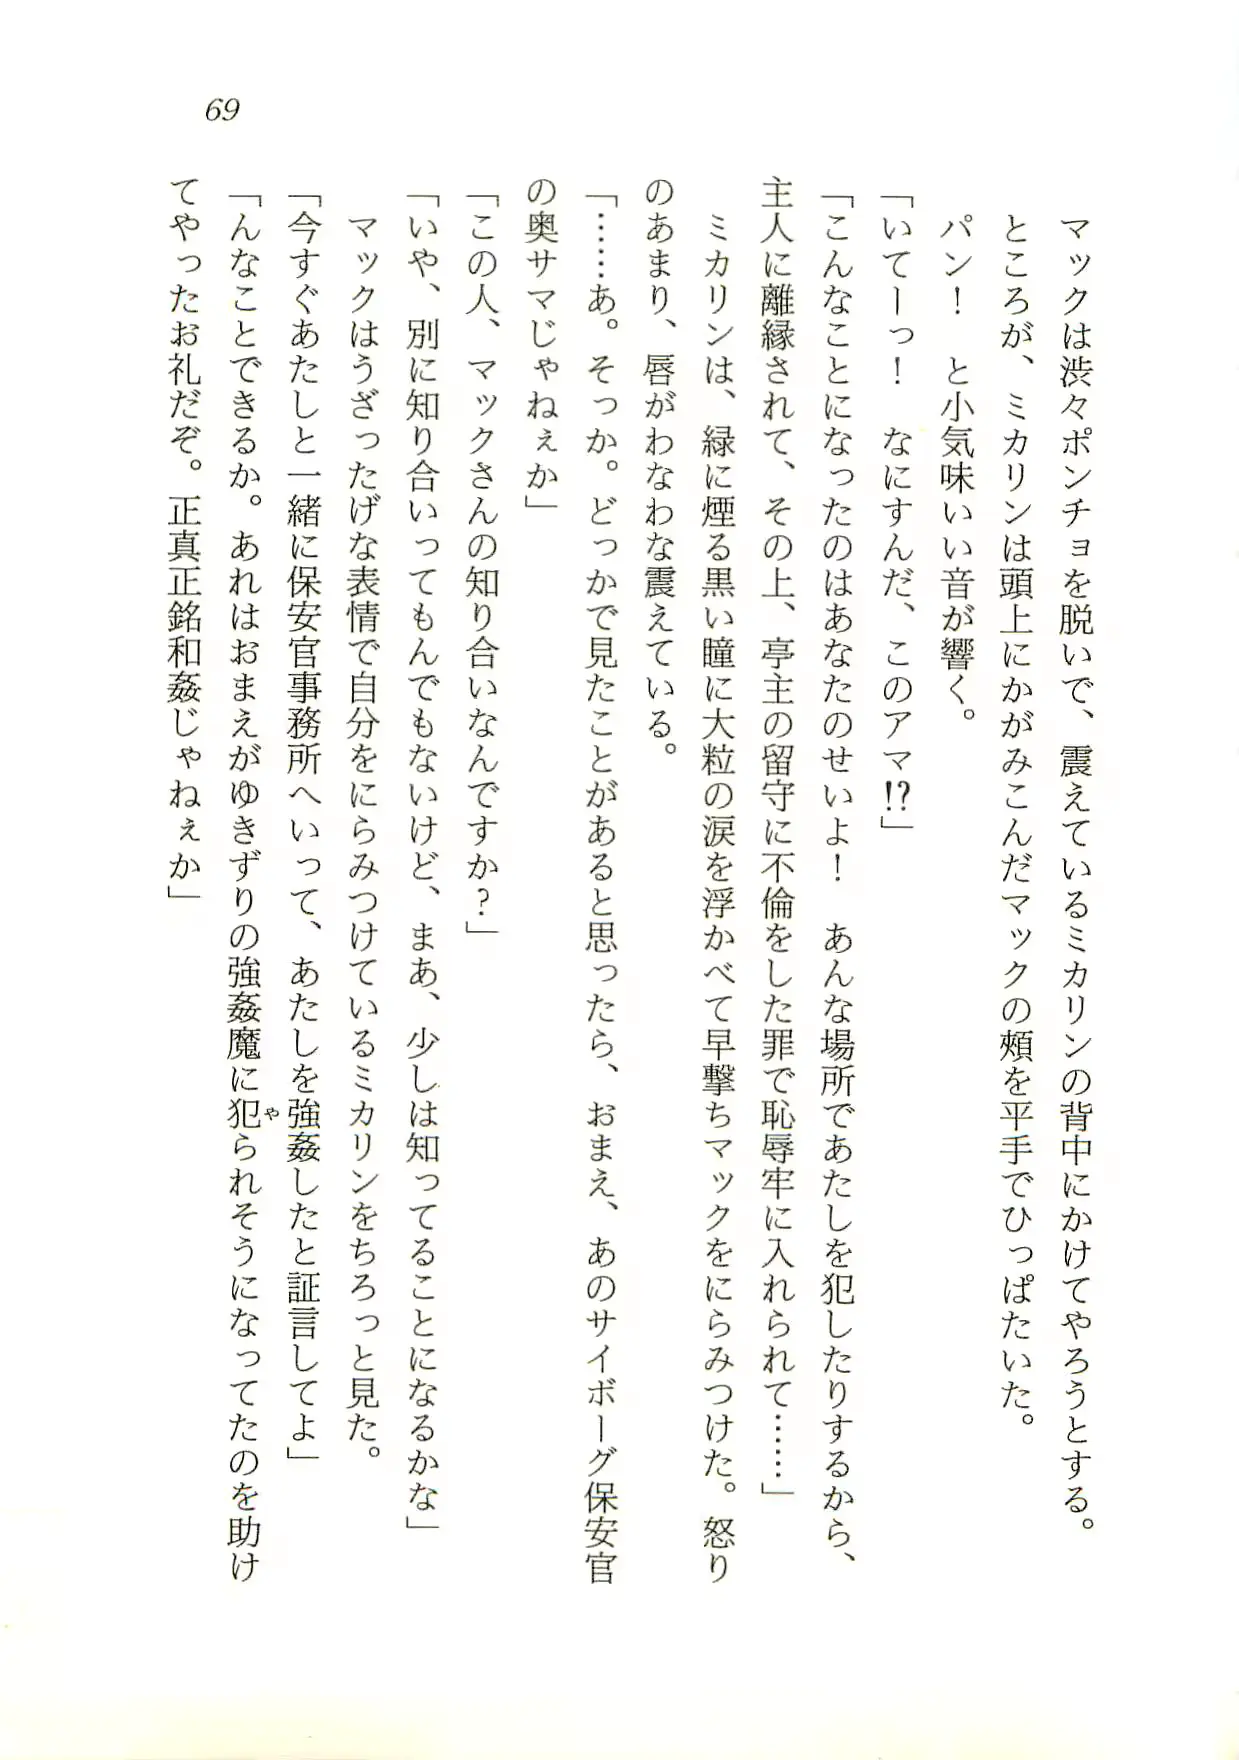 69
マックは渋々ポンチョを脱いで、震えているミカリンの背中にかけてやろうとする。
ところが、ミカリンは頭上にかがみこんだマックの頬を平手でひっぱたいた。
パン！　と小気味いい音が響く。
「いてーっ！　なにすんだ、このアマ!?」
「こんなことになったのはあなたのせいよ！　あんな場所であたしを犯したりするから、
主人に離縁されて、その上、亭主の留守に不倫をした罪で恥辱牢に入れられて……」
ミカリンは、緑に煙る黒い瞳に大粒の涙を浮かべて早撃ちマックをにらみつけた。怒り
のあまり、唇がわなわな震えている。
「……あ。そっか。どっかで見たことがあると思ったら、おまえ、あのサイボーグ保安官
の奥サマじゃねぇか」
「この人、マックさんの知り合いなんですか？」
「いや、別に知り合いってもんでもないけど、まあ、少しは知ってることになるかな」
マックはうざったげな表情で自分をにらみつけているミカリンをちろっと見た。
「今すぐあたしと一緒に保安官事務所へいって、あたしを強姦したと証言してよ」
「んなことできるか。あれはおまえがゆきずりの強姦魔に犯られそうになってたのを助け
や
てやったお礼だぞ。正真正銘和姦じゃねぇか」